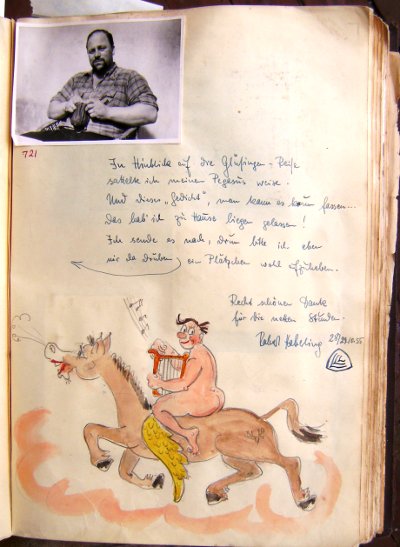 721
In Hinblick auf die Reise
sattelte ich meinen Pegasus weise.
Und dieses „Gedicht", man kann es kaum fassen...
Das hab' ich zu Hause liegen gelassen!
Ich sende es nach, drum bitte ich eben
mir da drüben ein Plätzchen wohl
Recht schönen Dank
für die netten Stunden.